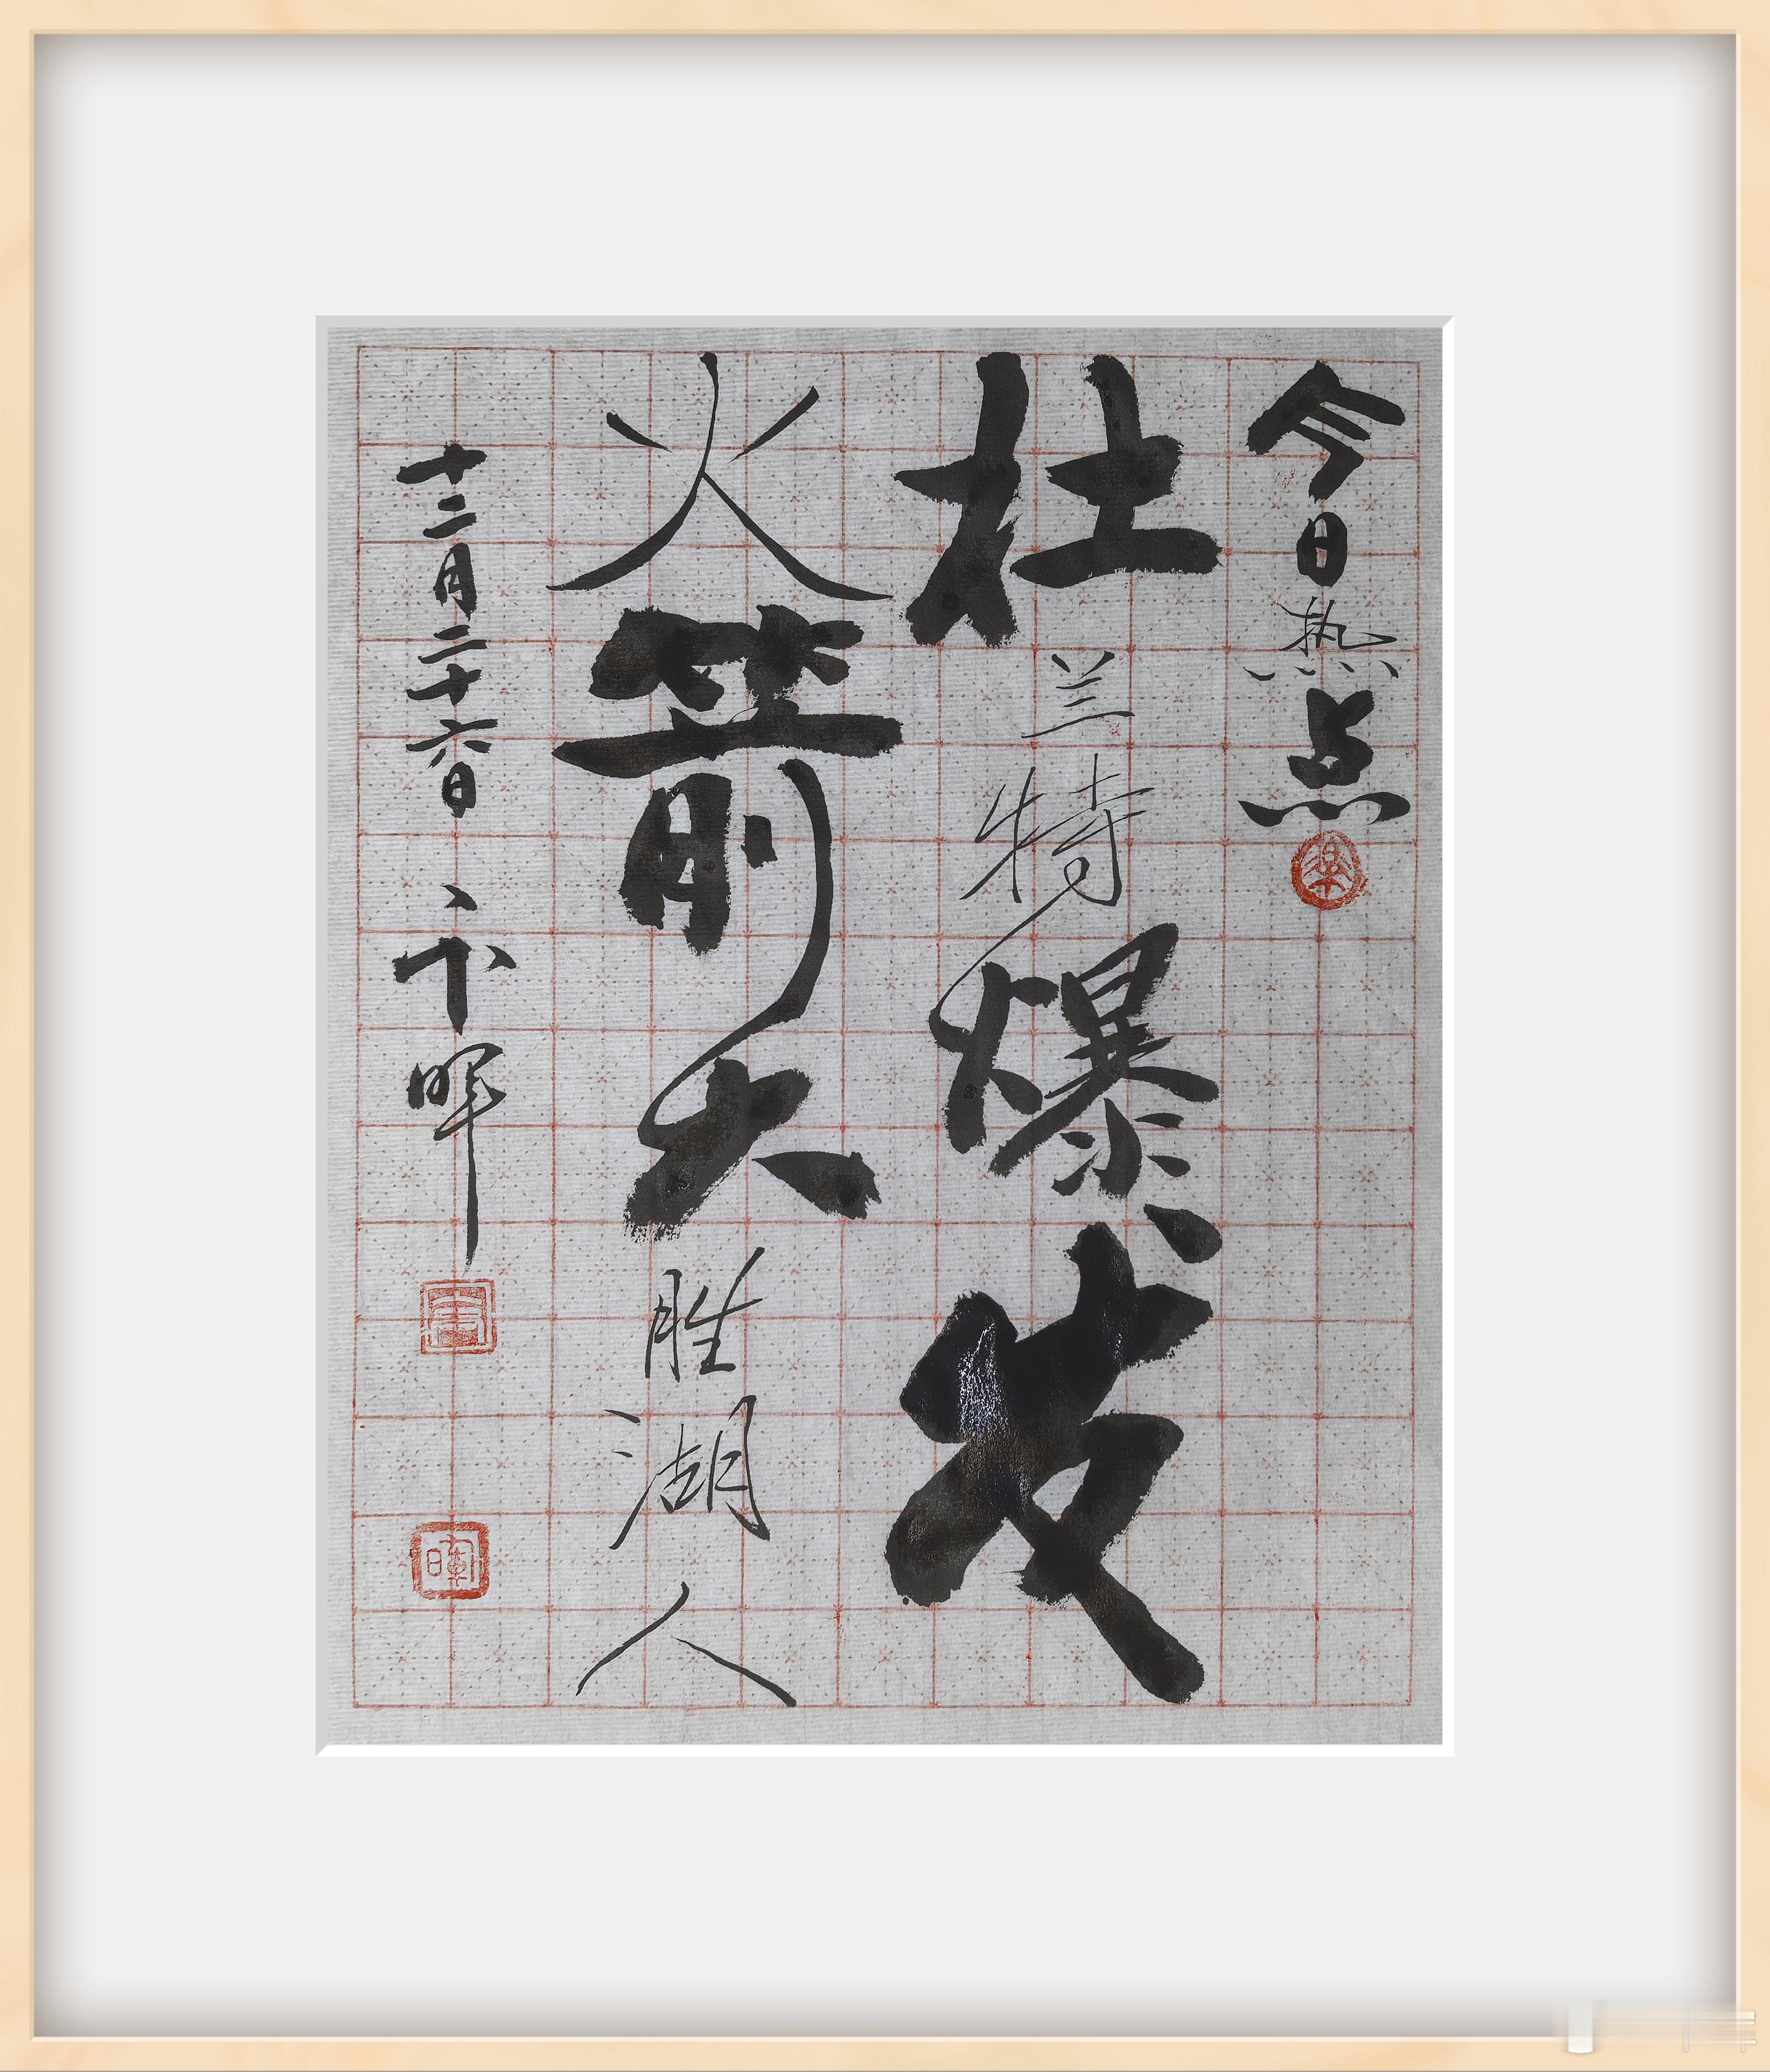 今日热点
杜兰特爆发
火箭大胜湖人
十二月二十六日 卞晖